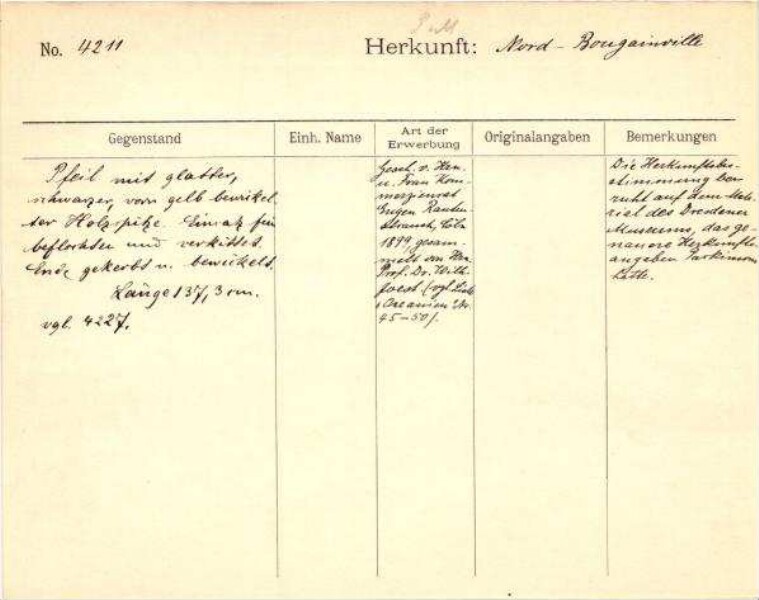 No. 4211
Herkunft: Nord-Bougainville
Gegenstand
Einh. Name
Art der Erwerbung
Originalangaben
Bemerkungen
Pfeil mit glatter,
schwarzer, vorn gelb bewickel
ter Holzspitze. Einsatz fein
beflochten und verkittet.
Ende gekerbt u. bewickelt.
Länge 137,3 cm.
vgl. 4227.
Gesch. v. Hrn.
u. Frau Kom-
merzienrat
Eugen Rauten-
strauch, Cöln
1899, gesam-
melt von Hrn.
Prof. Dr. Wilh.
Joest (vgl. Liste
Oceanien Nr.
45-50).
Die Herkunftsbe-
stimmung be
ruht auf dem Mate-
rial des Dresdener
Museums, das ge-
nauere Herkunfts-
angaben Parkinsons
hatte.